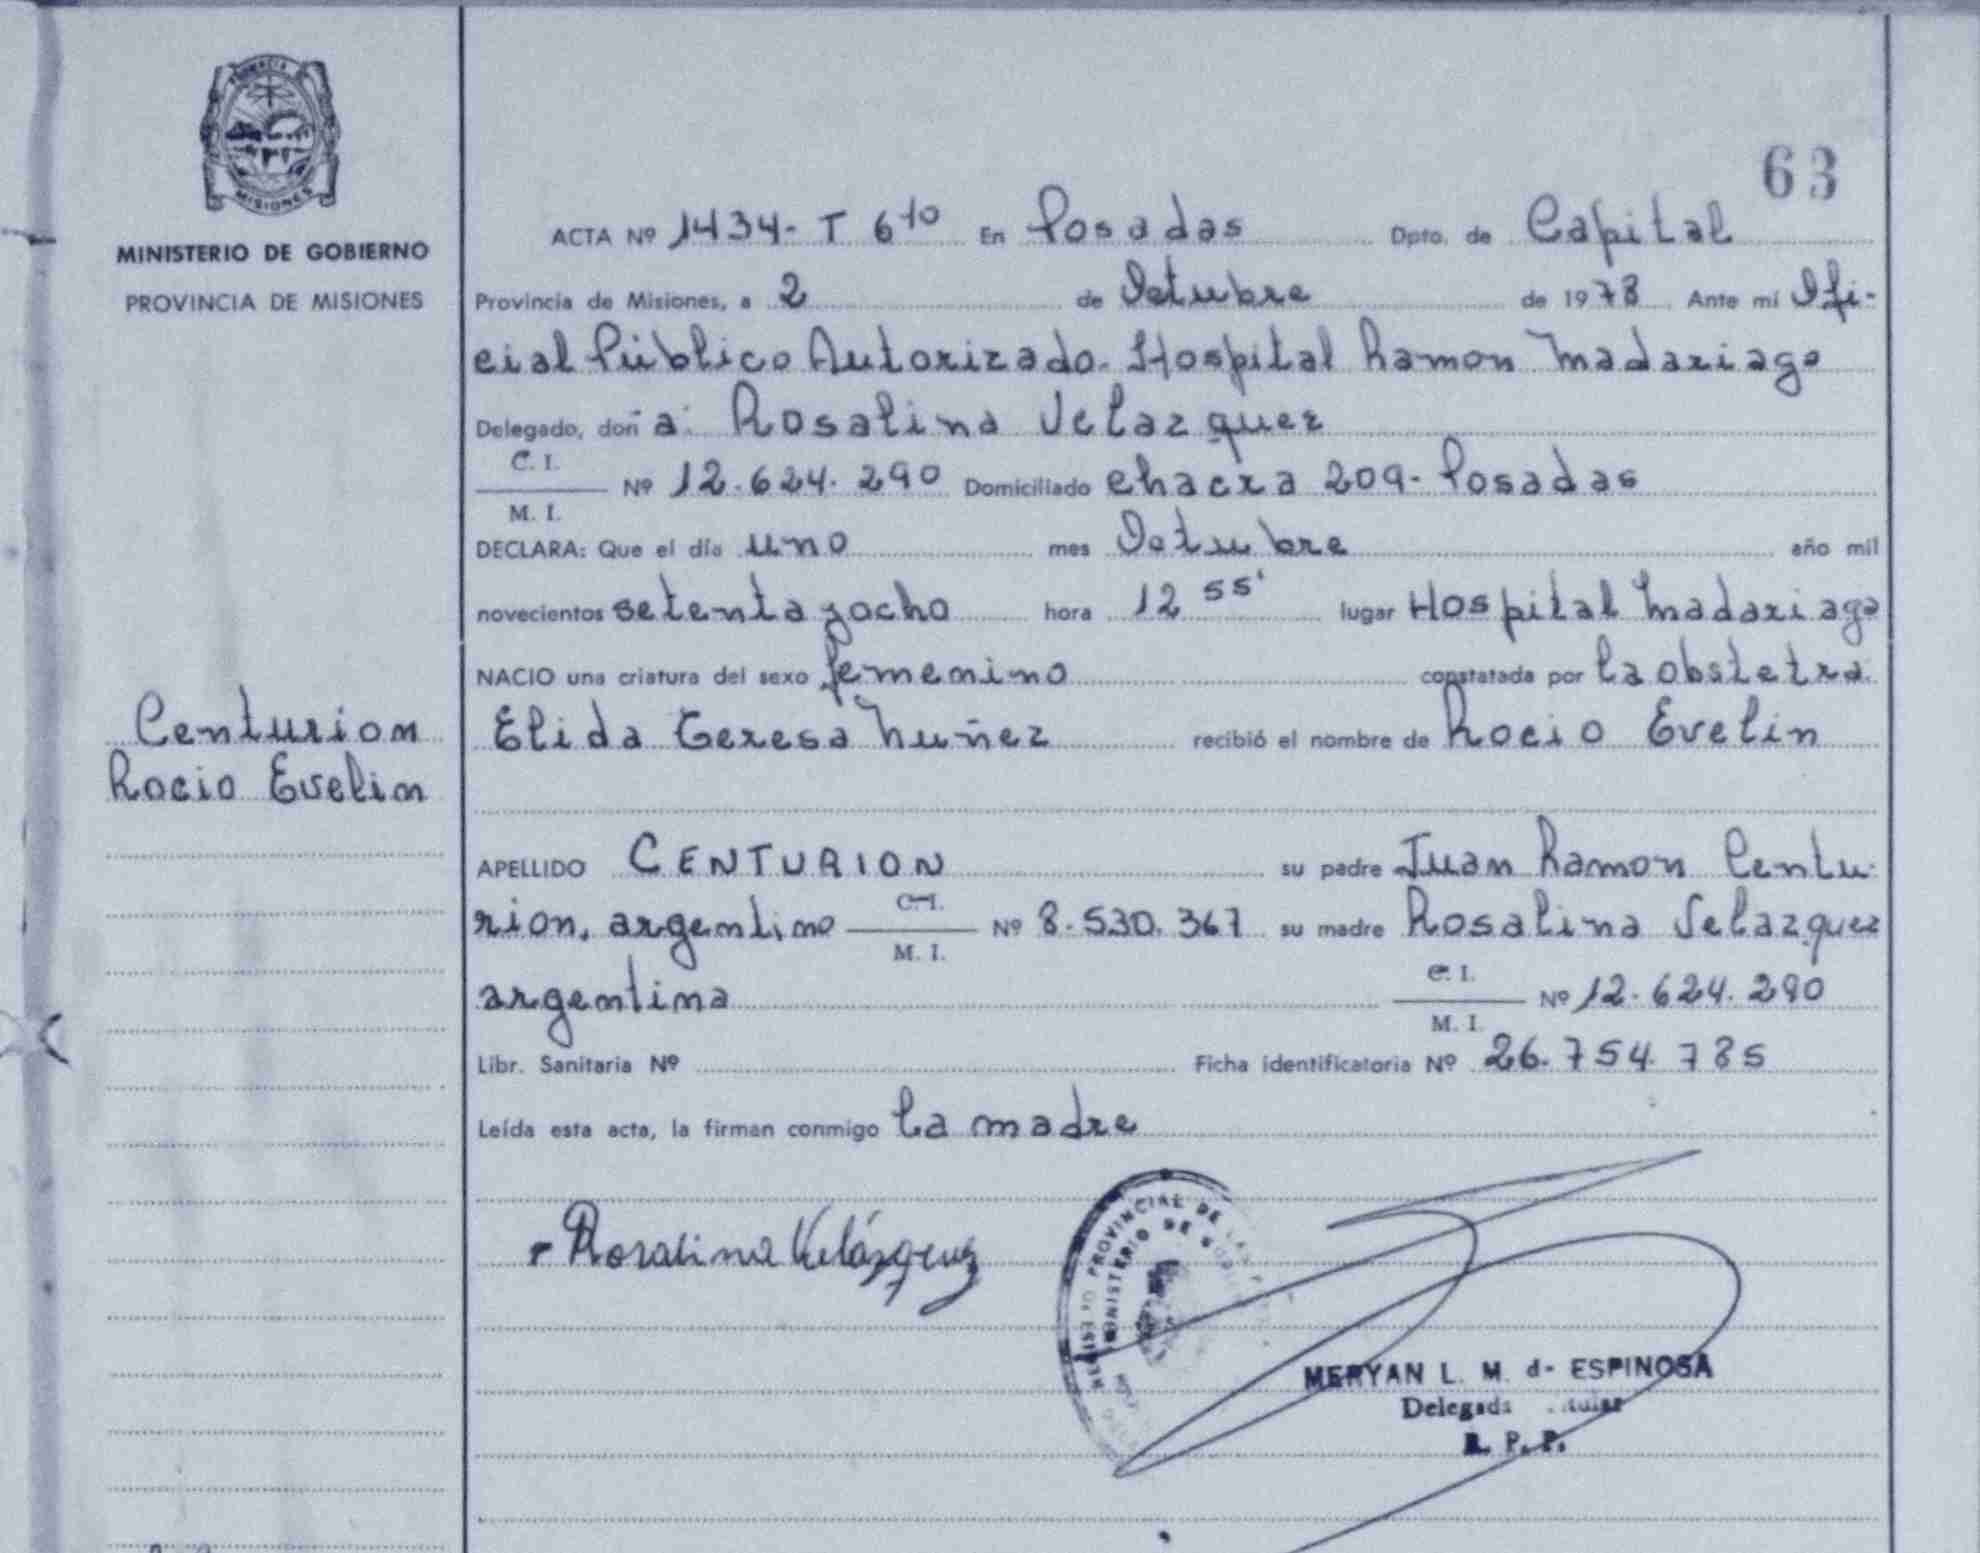 PROVINCIA DE
MISIONES
MINISTERIO DE GOBIERNO
PROVINCIA DE MISIONES
Centurion
Rocio Evelin
63
ACTA Nº 1434- T 6to En Posadas Dpto. de Capital
Provincia de Misiones, a 2 de Octubre de 1978 Ante mí Ofi-
cial Público Autorizado. Hospital Ramon Madariaga
Delegado, doña: Rosalina Velazquez
C. I.
M. I. Nº 12.624.290 Domiciliado chacra 209- Posadas
DECLARA: Que el día uno mes Octubre año mil
novecientos setenta y ocho hora 12 55' lugar Hospital Madariaga
NACIO una criatura del sexo femenino constatada por la obstetra.
Elida Teresa Nuñez recibió el nombre de Rocio Evelin
APELLIDO CENTURION su padre Juan Ramon Centu-
rion, argentino C. I. M. I. Nº 8.530.367 su madre Rosalina Velazquez
argentina C. I. M. I. Nº 12.624.290
Libr. Sanitaria Nº Ficha identificatoria Nº 26.754.785
Leída esta acta, la firman conmigo la madre
Rosalina Velázquez
PROVINCIAL DE LAS
MINISTERIO DE
MERYAN L. M. de ESPINOSA
Delegada
R. P. P.